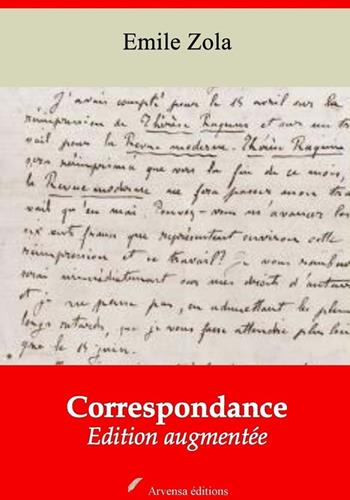 Emile Zola
J'avais compté pour le 15 avril sur la
réimpression de Thérèse Raquin et sur un tra-
vail pour la Revue moderne. Thérèse Raquin
sera réimprimé que vers la fin de ce mois,
la Revue moderne ne fera passer mon tra
vail qu'en mai. Pouvez-vous m'avancer les
six cents francs que représentent environ cette
réimpression et ce travail? Je vous rembour
serai immédiatement sur mes droits d'auteur
et je ne pense pas, en admettant les plus
longs retards, que je vous fasse attendre plus loin
que le 15 juin.
Correspondance
Edition augmentée
Arvensa éditions